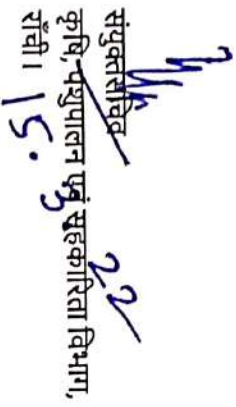 संयुक्त सचिव
कृषि, पशुपालन एवं सहकारिता विभाग,
राँची।
15.3.22